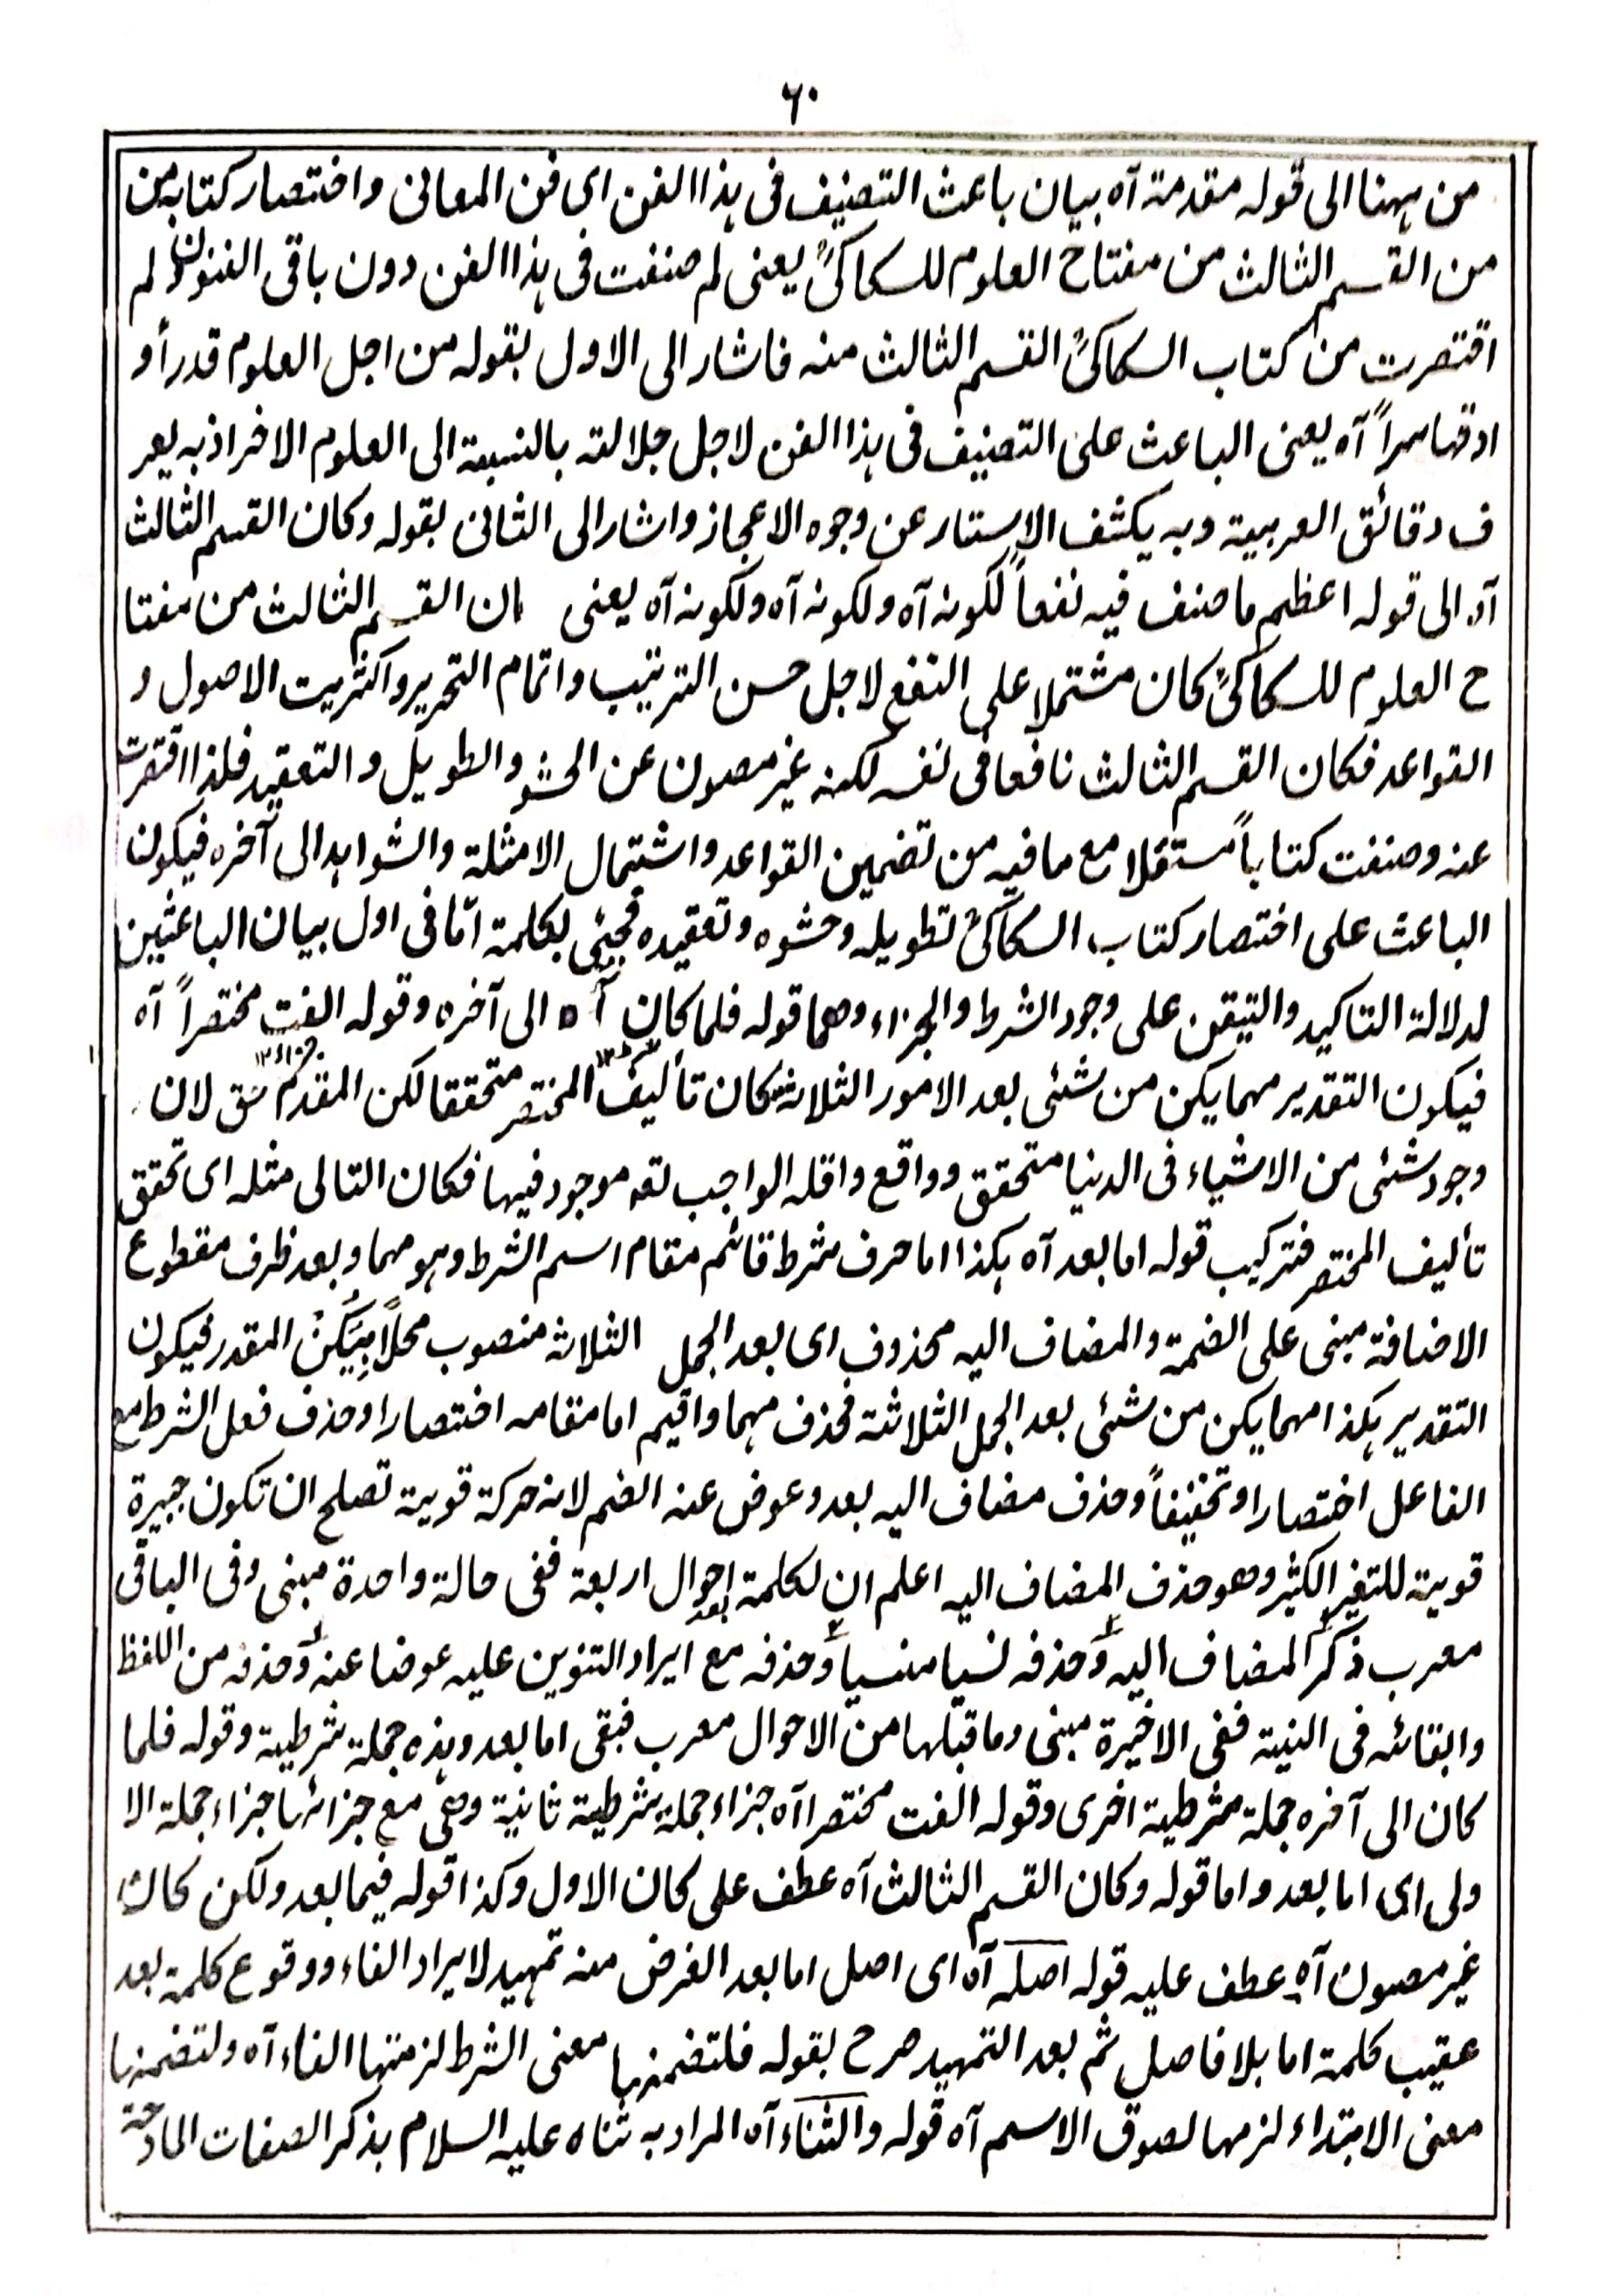 ٦٠
من ہهنا الى قوله مقدمة آه بيان باعث التصنيف فى ہذا الفن اى فن المعانى واختصار كتابه من
من القسم الثالث من مفتاح العلوم للسكاكىؒ يعنى لم صنفت فى ہذا الفن دون باقى الفنون ولم
اقتصرت من كتاب السكاكىؒ القسم الثالث منه فاشار الى الاول بقوله من اجل العلوم قدراً و
ادقها سراً آه يعنى الباعث على التصنيف فى ہذا الفن لاجل جلالته بالنسبة الى العلوم الاخر اذ به يعر
ف دقائق العربية وبه يكشف الاستار عن وجوه الاعجاز واشار الى الثانى بقوله وكان القسم الثالث
آه الى قوله اعظم ما صنف فيه نفعاً لكونه آه ولكونه آه ولكونه آه يعنى ان القسم الثالث من مفتا
ح العلوم للسكاكىؒ كان مشتملا على النفع لاجل حسن الترتيب واتمام التحرير واكثريت الاصول و
القواعد فكان القسم الثالث نافعا فى نفسه لكنه غير مصون عن الحشو والطويل والتعقيد فلذا اقتصرت
عنه وصنفت كتاباً مستقلا مع ما فيه من تضمين القواعد واشتمال الامثلة والشواہد الى آخره فيكون
الباعث على اختصار كتاب السكاكىؒ تطويله وحشوه وتعقيده فجيئ بكلمة امّا فى اول بيان الباعثين
لدلالة التاكيد والتيقن على وجود الشرط والجزاء وهما قوله فلما كان آه الى آخره وقوله الفت مختصراً آه
فيكون التقدير مهما يكن من شئى بعد الامور الثلاثة كان تأليف المختصر متحققا لكن المقدم حق لان
وجود شئى من الاشياء فى الدنيا متحقق وواقع واقله الواجب تعه موجود فيها فكان التالى مثله اى تحقق
تأليف المختصر فتركيب قوله اما بعد آه ہكذا اما حرف شرط قائم مقام اسم الشرط وہو مهما وبعد ظرف مقطوع
الاضافة مبنى على الضمة والمضاف اليه محذوف اى بعد الجمل الثلاثه منصوب محلاً بِيَكُنْ المقدر فيكون
التقدير ہكذا مهما يكن من شئى بعد الجمل الثلاثة فحذف مهما واقيم اما مقامه اختصارا وحذف فعل الشرط مع
الفاعل اختصارا وتخفيفاً وحذف مضاف اليه بعد وعوض عنه الضم لانه حركة قوية تصلح ان تكون جبيرة
قوية للتغير الكثير وهو حذف المضاف اليه اعلم ان لكلمة بعد احوال اربعة ففى حالة واحدة مبنى وفى الباقى
معرب ذكر المضاف اليه وحذفه نسيا منسيا وحذفه مع ايراد التنوين عليه عوضا عنه وحذفه من اللفظ
وابقائه فى النية ففى الاخيرة مبنى وما قبلها من الاحوال معرب فبقى اما بعد وہذه جملة شرطية وقوله فلما
كان الى آخره جملة شرطية اخرى وقوله الفت مختصرا آه جزاء جملة شرطية ثانية وهى مع جزائها جزاء جملة الا
ولى اى اما بعد واما قوله وكان القسم الثالث آه عطف على كان الاول وكذا قوله فيما بعد ولكن كان
غير مصون آه عطف عليه قوله اصله آه اى اصل اما بعد الغرض منه تمهيد لايراد الفاء ووقوع كلمة بعد
عقيب كلمة اما بلا فاصل ثم بعد التمهيد صرح بقوله فلتضمنہا معنى الشرط لزمتها الفاء آه ولتضمنہا
معنى الابتداء لزمها لصوق الاسم آه قوله والثناء آه المراد به ثناه عليه السلام بذكر الصفات المادحة